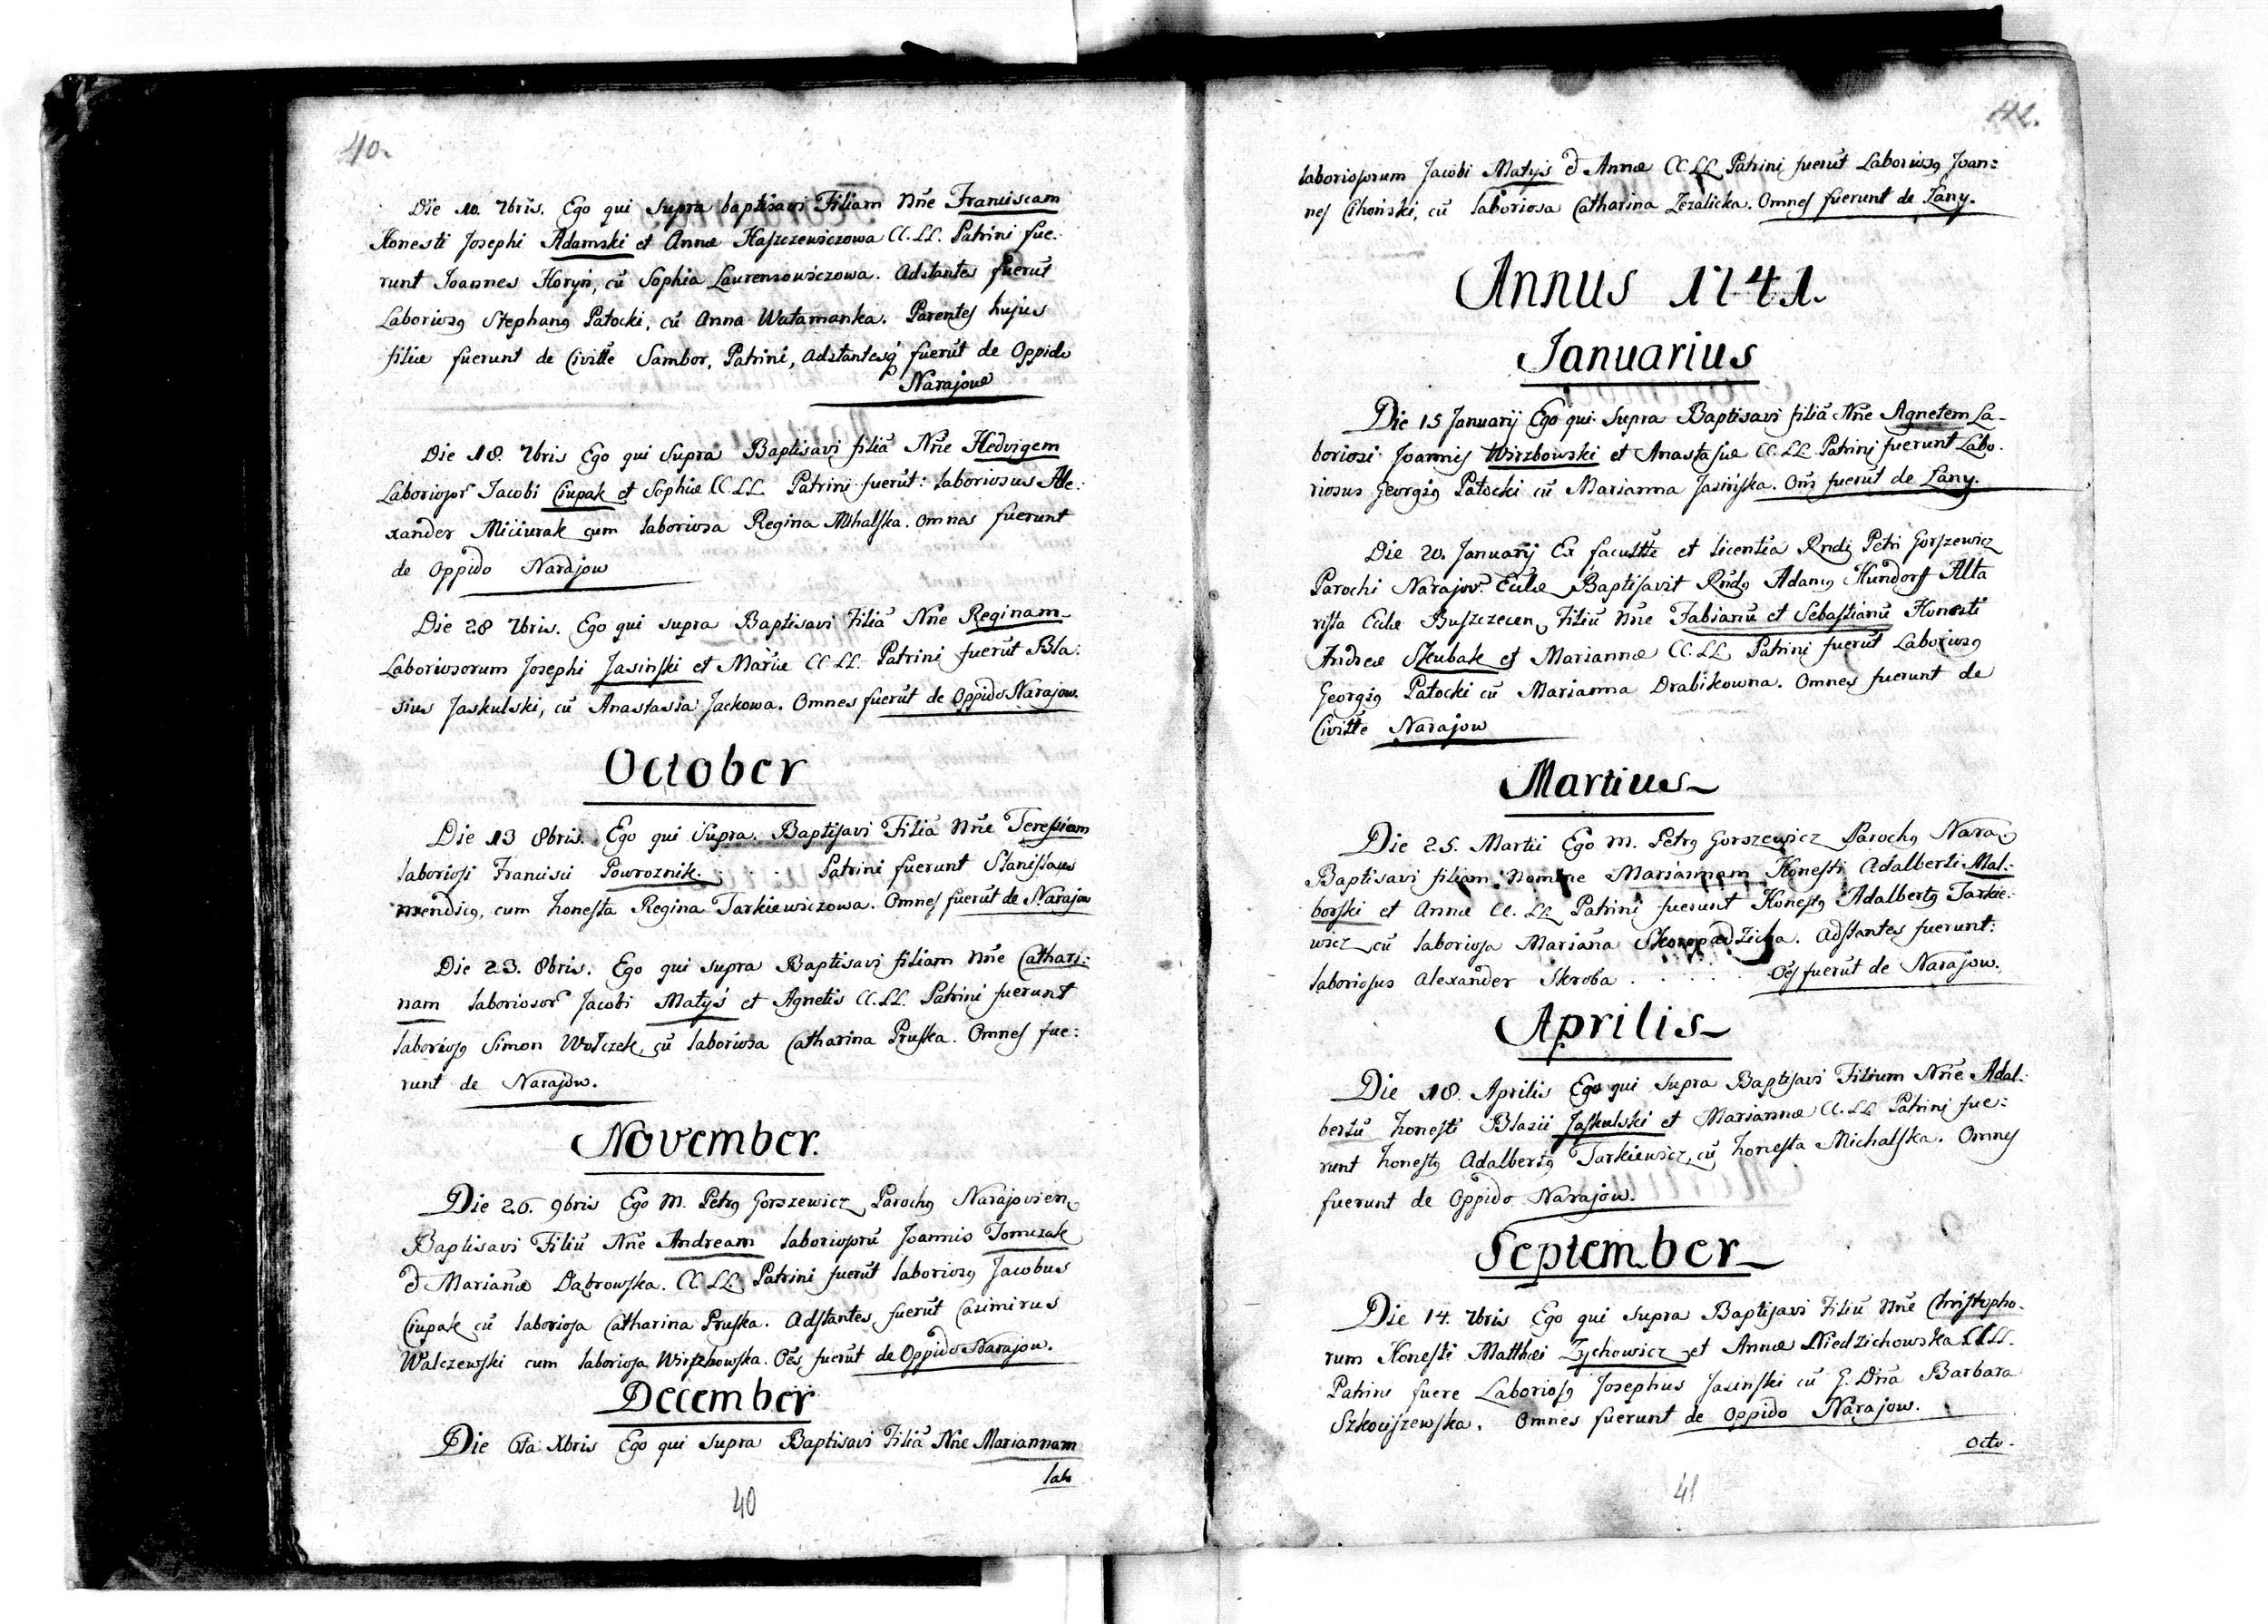 40.
Die 10. 7bris. Ego qui supra baptisavi Filiam Nñe Franciscam
Honesti Josephi Adamski et Annæ Haszczewiczowa CC. LL. Patrini fue:
runt Joannes Horyn, cũ Sophia Laurensowiczowa. Adstantes fuerũt
Laboriosꝯ Stephanꝯ Patocki, cũ Anna Watamanka. Parentes hujus
filiæ fuerunt de Civitte Sambor, Patrini, adstantesq fuerũt de Oppido
Narajow
Die 18. 7bris Ego qui supra Baptisavi filiã Nñe Hedvigem
Laboriosor Jacobi Ciupak et Sophiæ CC. LL. Patrini fuerũt: laboriosus Ale:
xander Miciurak cum laboriosa Regina Mihalska. Omnes fuerunt
de Oppido Narajow
Die 28 7bris. Ego qui supra Baptisavi Filiã Nñe Reginam
Laboriosorum Josephi Jasinski et Mariæ CC. LL. Patrini fuerũt Bla:
sius Jaskulski, cũ Anastasia Jackowa. Omnes fuerũt de Oppido Narajow.
October
Die 13 8bris. Ego qui Supra. Baptisavi Filiã Nñe Teresiam
laboriosi Francisci Powroznik. . . . Patrini fuerunt Stanislaus
mendicꝯ, cum honesta Regina Tarkiewiczowa. Omnes fuerũt de Narajow
Die 23. 8bris. Ego qui supra Baptisavi filiam Nñe Cathari:
nam laboriosor Jacobi Matyś et Agnetis CC. LL. Patrini fuerunt
laboriosꝯ Simon Wolczek, cũ laboriosa Catharina Pruska. Omnes fue:
runt de Narajow.
November.
Die 26. 9bris Ego M. Petrꝯ Gorszewicz Parochꝯ Narajovien
Baptisavi Filiũ Nñe Andream laboriosorũ Joannis Tomczak
et Mariañæ Dabrowska. CC. LL. Patrini fuerũt laboriosꝯ Jacobus
Ciupak cũ laboriosa Catharina Pruska. Adstantes fuerũt Casimirus
Walczewski cum laboriosa Wirzbowska. Oẽs fuerũt de Oppido Narajow.
December
Die 6ta Xbris Ego qui supra Baptisavi Filiã Nñe Mariannam
lab
40
laboriosorum Jacobi Matyś et Annæ CC. LL. Patrini fuerũt Laboriosꝯ Joan:
nes Cihoński, cũ laboriosa Catharina Zezalicka. Omnes fuerunt de Łany.
Annus 1741.
Januarius
Die 15 Januarij Ego qui supra Baptisavi filiã Nñe Agnetem La-
boriosi Joannis Wirzbowski et Anastasiæ CC. LL. Patrini fuerunt Labo.
riosus Georgiꝯ Patocki cũ Marianna Jasinska. Om̃s fuerũt de Łany.
Die 20. Januarij Ex facultte et licentia Rndi Petri Gorszewicz
Parochi Narajov. Eccle Baptisavit Rndꝯ Adamꝯ Kundorf Alta
rista Eccle Buszczecen. Filiũ Nñe Fabianũ et Sebastianũ Honesti
Andreæ Skubak et Mariannæ CC. LL. Patrini fuerũt Laboriosꝯ
Georgiꝯ Patocki cũ Marianna Drabikowna. Omnes fuerunt de
Civitte Narajow
Martius
Die 25. Martii Ego M. Petrꝯ Gorszewicz Parochꝯ Nara:
Baptisavi filiam nomine Mariannam Honesti Adalberti Mal:
borski et Annæ CC. LL. Patrini fuerunt Honestꝯ Adalbertꝯ Tarkie:
wicz cũ laboriosa Mariana. Adstantes fuerunt:
laboriosus Alexander Skroba . . . . . Oẽs fuerũt de Narajow.
Aprilis
Die 18. Aprilis Ego qui supra Baptisavi Filium Nñe Adal:
bertũ honesti Blasii Jaskulski et Mariannæ CC. LL Patrini fue:
runt honestꝯ Adalbertꝯ Tarkiewicz, cũ honesta Michalska. Omnes
fuerunt de Oppido Narajow.
September
Die 14. 7bris Ego qui supra Baptisavi Filiũ Nñe Christopho-
rum Honesti Matthæi Zychowicz et Annæ Niedzichowska CC LL.
Patrini fuere Laboriosꝯ Josephus Jasinski cũ G. Dña Barbara
Szkociszewska. Omnes fuerunt de Oppido Narajow.
Octo.
41